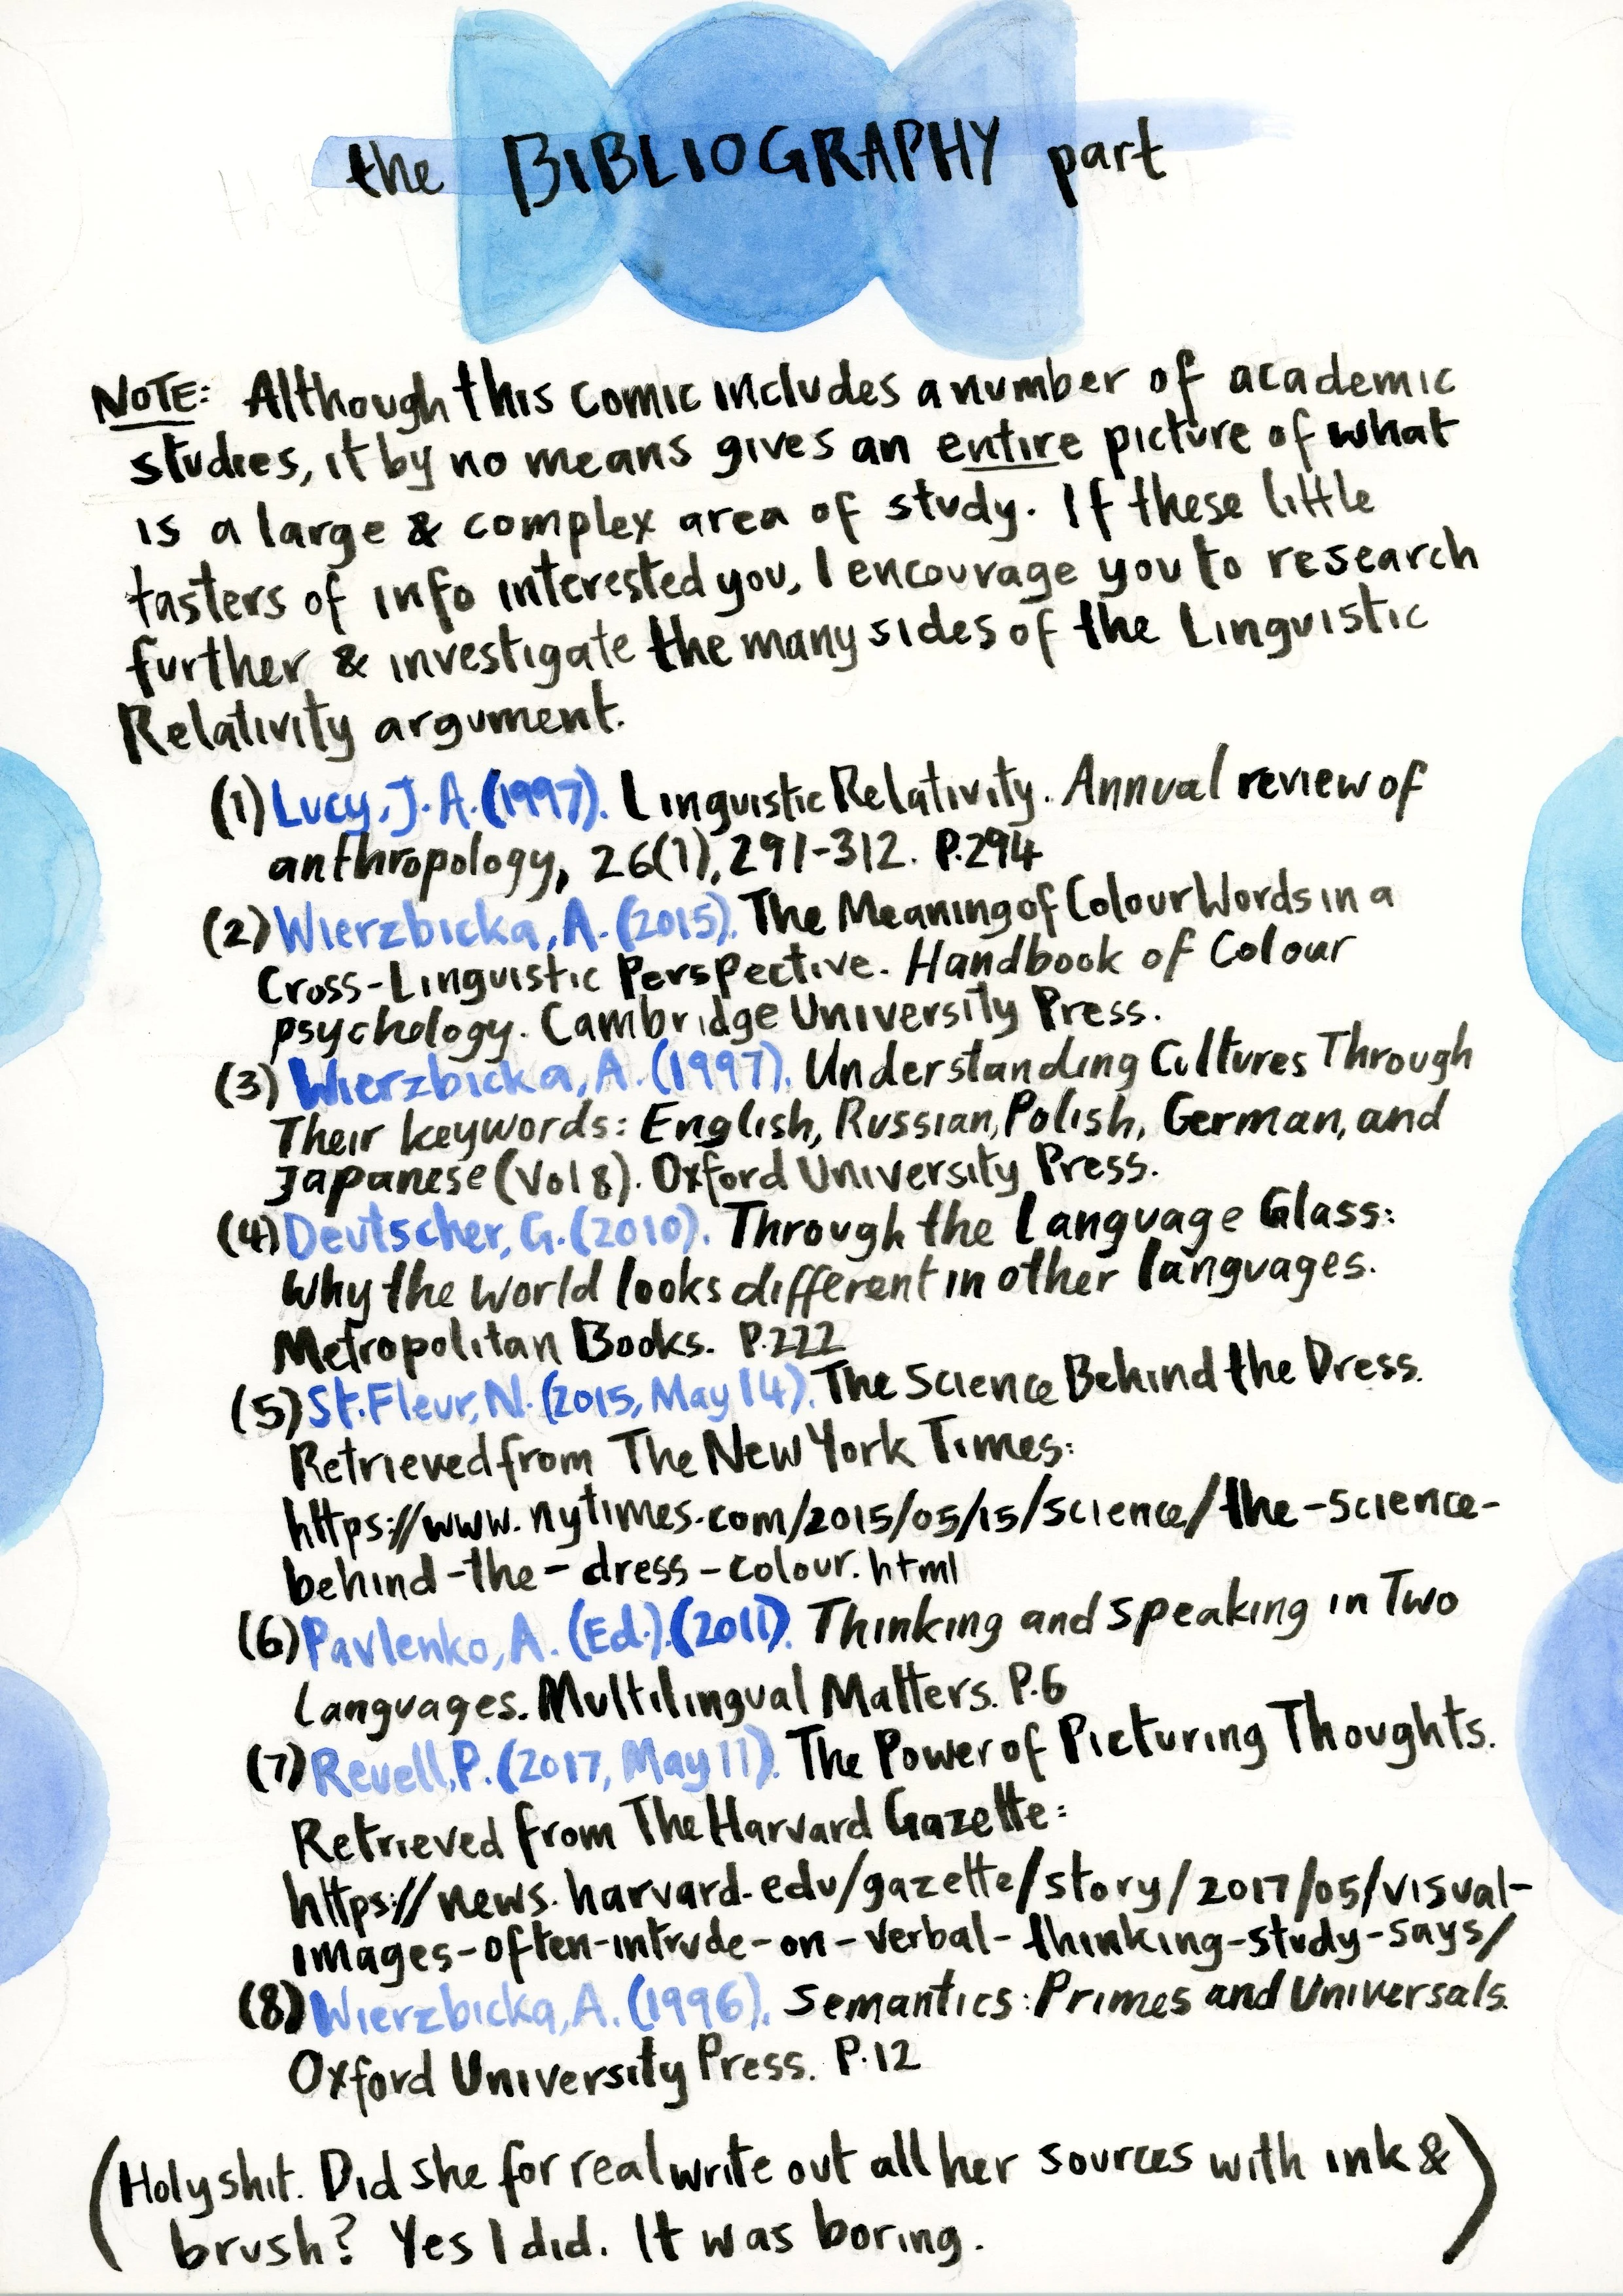 the BIBLIOGRAPHY part
NOTE: Although this comic includes a number of academic
studies, it by no means gives an entire picture of what
is a large & complex area of study. If these little
tasters of info interested you, I encourage you to research
further & investigate the many sides of the Linguistic
Relativity argument.
(1) Lucy, J. A. (1997). Linguistic Relativity. Annual review of
anthropology, 26(1), 291-312. P.294
(2) Wierzbicka, A. (2015). The Meaning of Colour Words in a
Cross-Linguistic Perspective. Handbook of Colour
psychology. Cambridge University Press.
(3) Wierzbicka, A. (1997). Understanding Cultures Through
Their keywords: English, Russian, Polish, German, and
Japanese (Vol 8). Oxford University Press.
(4) Deutscher, G. (2010). Through the Language Glass:
Why the world looks different in other languages.
Metropolitan Books. P.222
(5) St. Fleur, N. (2015, May 14). The Science Behind the Dress.
Retrieved from The New York Times:
https://www.nytimes.com/2015/05/15/science/the-science-
behind-the-dress-colour.html
(6) Pavlenko, A. (Ed.). (2011). Thinking and speaking in Two
Languages. Multilingual Matters. P.6
(7) Revell, P. (2017, May 11). The Power of Picturing Thoughts.
Retrieved from The Harvard Gazette:
https://news.harvard.edu/gazette/story/2017/05/visual-
images-often-intrude-on-verbal-thinking-study-says/
(8) Wierzbicka, A. (1996). Semantics: Primes and Universals.
Oxford University Press. P.12
(Holy shit. Did she for real write out all her sources with ink &
brush? Yes I did. It was boring.)